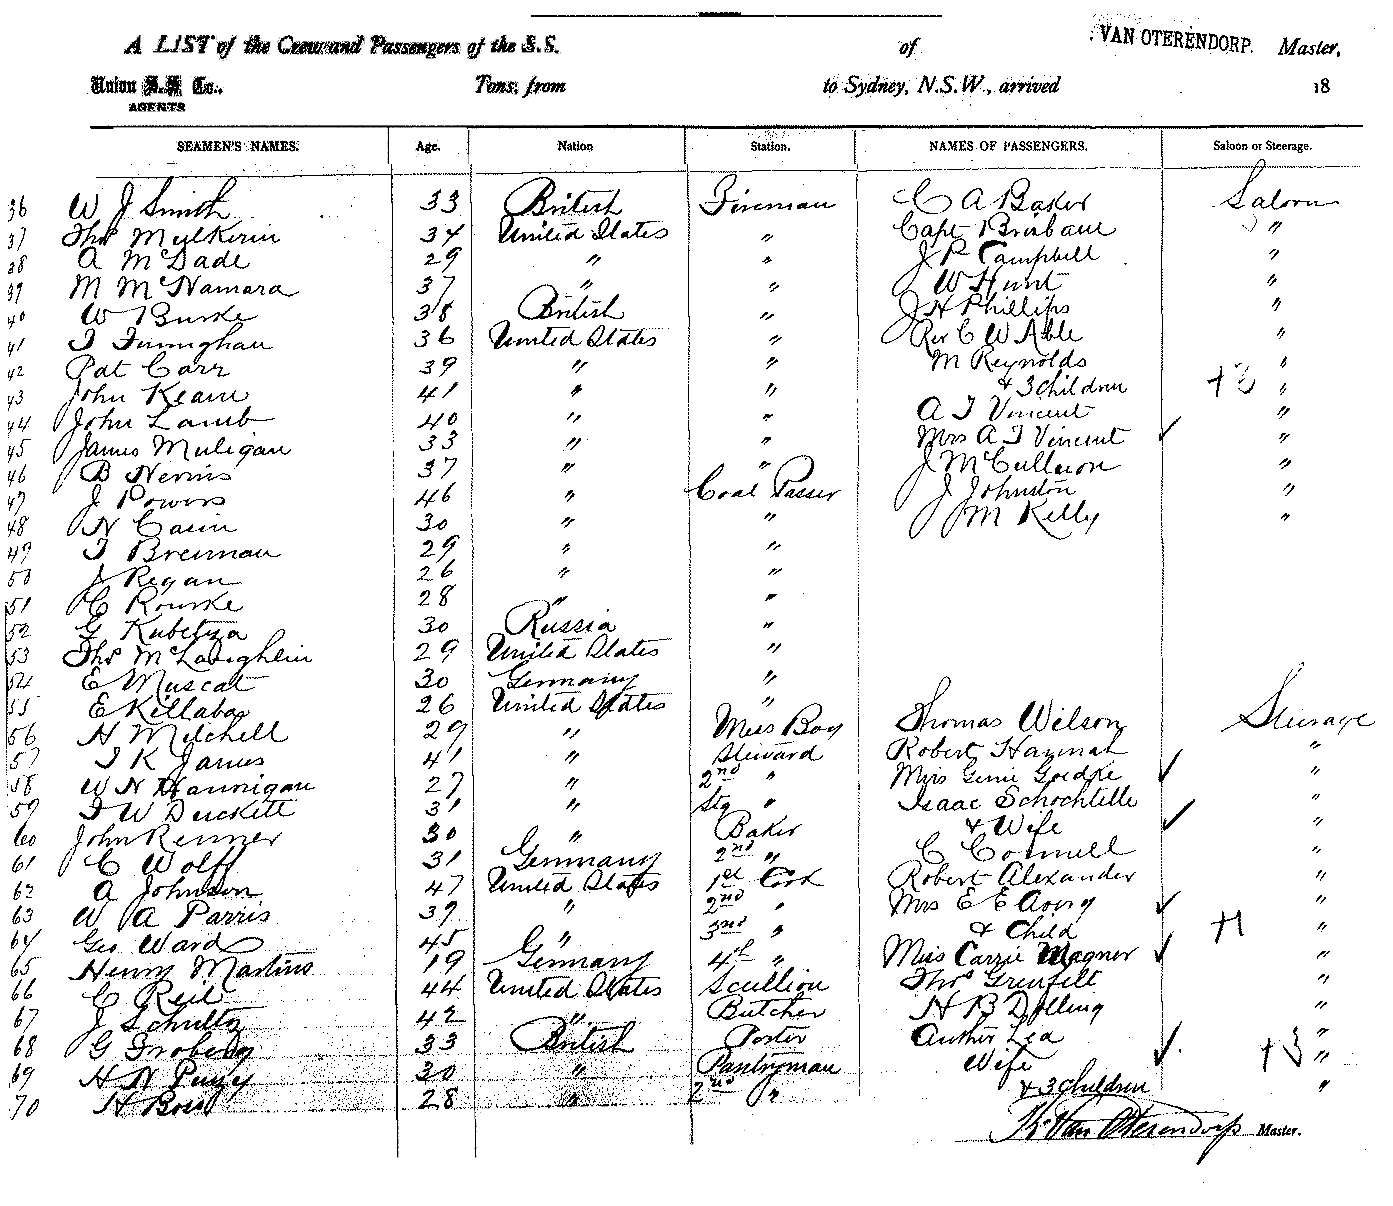 A LIST of the Crew and Passengers of the S.S. of VAN OTERENDORP. Master,
Union S.S. Co., Tons, from to Sydney, N.S.W., arrived 18
AGENTS
SEAMEN'S NAMES. Age. Nation Station. NAMES OF PASSENGERS. Saloon or Steerage.
36 W J Smith 33 British Fireman C A Baker Saloon
37 Thos Mulkerin 34 United States " Capt Brisbane "
38 A McDade 29 " " J P Campbell "
39 M McNamara 37 " " W Hunt "
40 W Burke 38 British " J H Phillips "
41 T Finnighan 36 United States " Rev C W Able "
42 Pat Carr 39 " " M Reynolds "
43 John Keane 41 " " & 3 Children +2 "
44 John Lamb 40 " " A T Vincent "
45 James Muligan 33 " " Mrs A T Vincent ✓ "
46 B Nevins 37 " " J McCullacon "
47 J Powers 46 " Coal Passer J Johnston "
48 N Cain 30 " " J M Kelly "
49 T Brennan 29 " "
50 J Regan 26 " "
51 C Rourke 28 " "
52 G Kubetza 30 Russia "
53 Thos McLaughlin 29 United States "
54 E Muscat 30 Germany "
55 E Killaba 26 United States "
56 H Mitchell 29 " Mess Boy Thomas Wilson Steerage
57 T K James 41 " Steward Robert Hannah "
58 W N Hannigan 27 " 2nd " Miss Genie Goedke ✓ "
59 T W Duckett 31 " Stg " Isaac Schochtelle "
60 John Renner 30 " Baker & Wife ✓ "
61 C Wolff 31 Germany 2nd " C Connell "
62 A Johnson 47 United States 1st Cook Robert Alexander "
63 W A Parris 39 " 2nd " Mrs E E Avery ✓ "
64 Geo Ward 45 " 3rd " & Child +1 "
65 Henry Martins 19 Germany 4th " Miss Carrie Wagner ✓ "
66 C Reil 44 United States Scullion Thos Grenfelt "
67 J Schultz 42 " Butcher H B Dolling "
68 G Froberg 33 British Porter Author Lea "
69 H N Pusey 30 " Pantryman Wife ✓ +3 "
70 H Boss 28 " 2nd " & 3 Children "
K. Van Oterendorp Master.